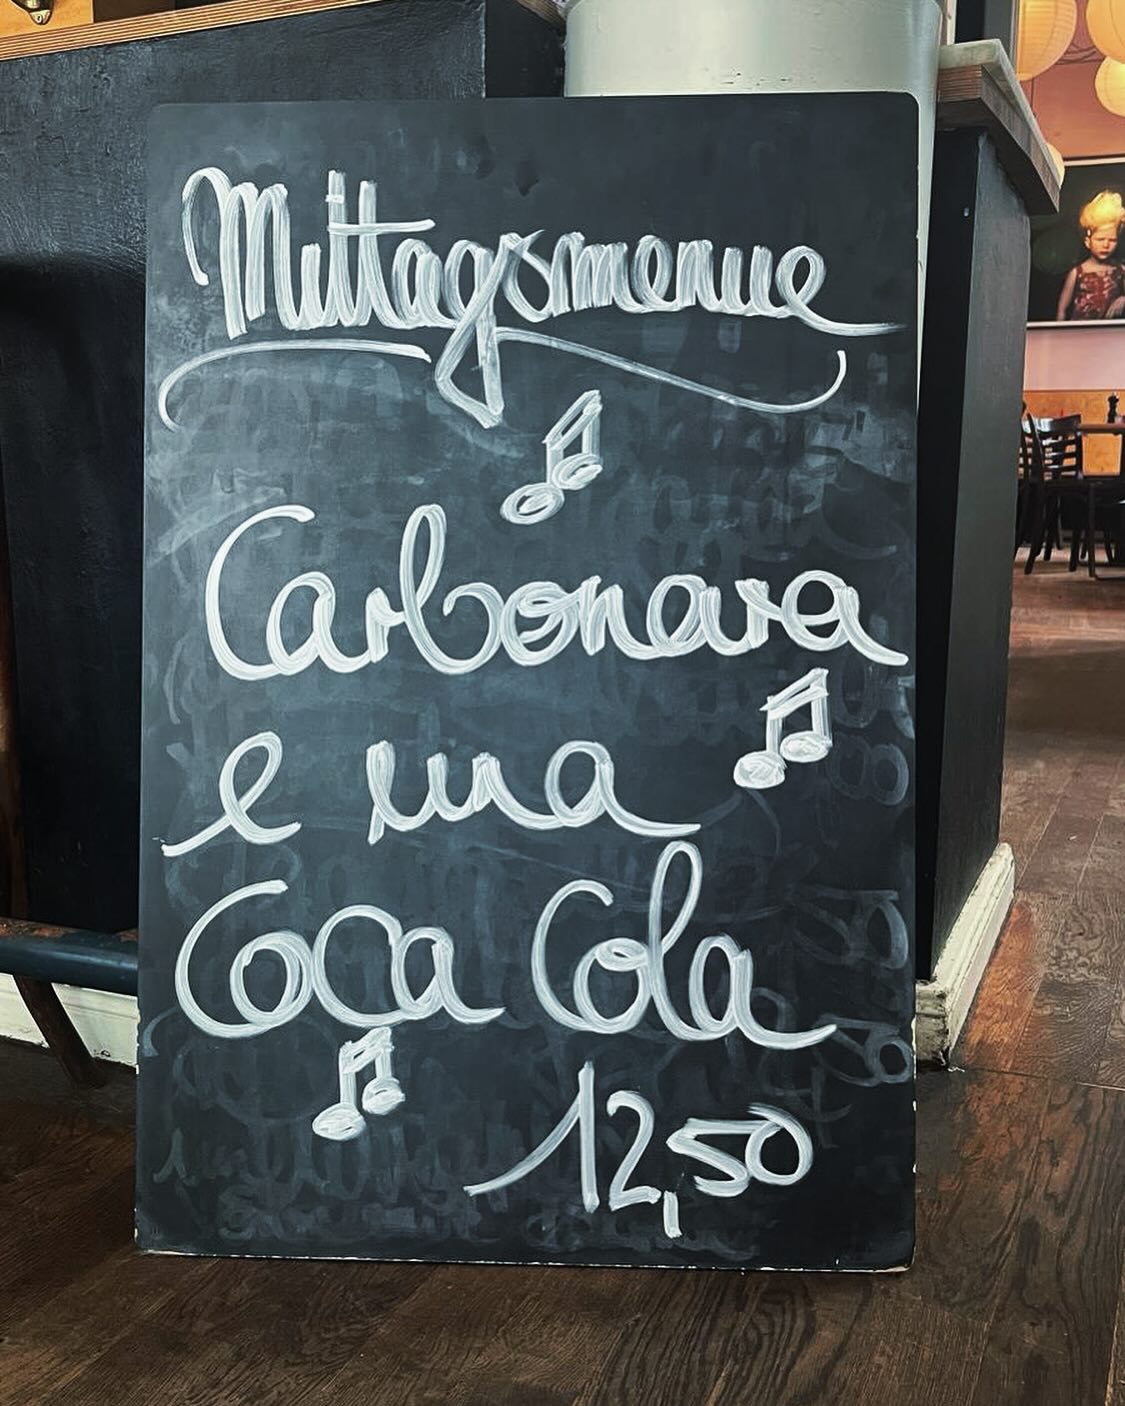 Mittagsmenue
Carbonara
e una
Coca Cola
12,50